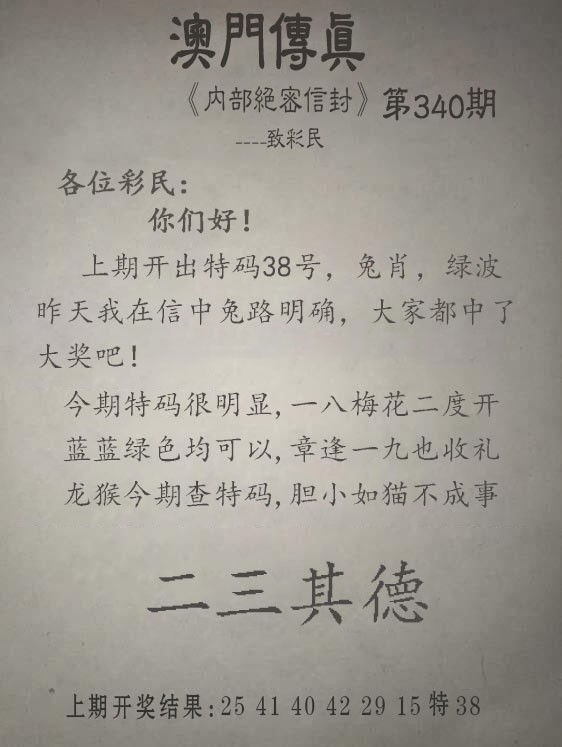 澳門傳眞
《内部絕密信封》第340期
----致彩民
各位彩民：
你们好！
上期开出特码38号，兔肖，绿波
昨天我在信中兔路明确，大家都中了
大奖吧！
今期特码很明显,一八梅花二度开
蓝蓝绿色均可以,章逢一九也收礼
龙猴今期查特码,胆小如猫不成事
二三其德
上期开奖结果:25 41 40 42 29 15 特 38